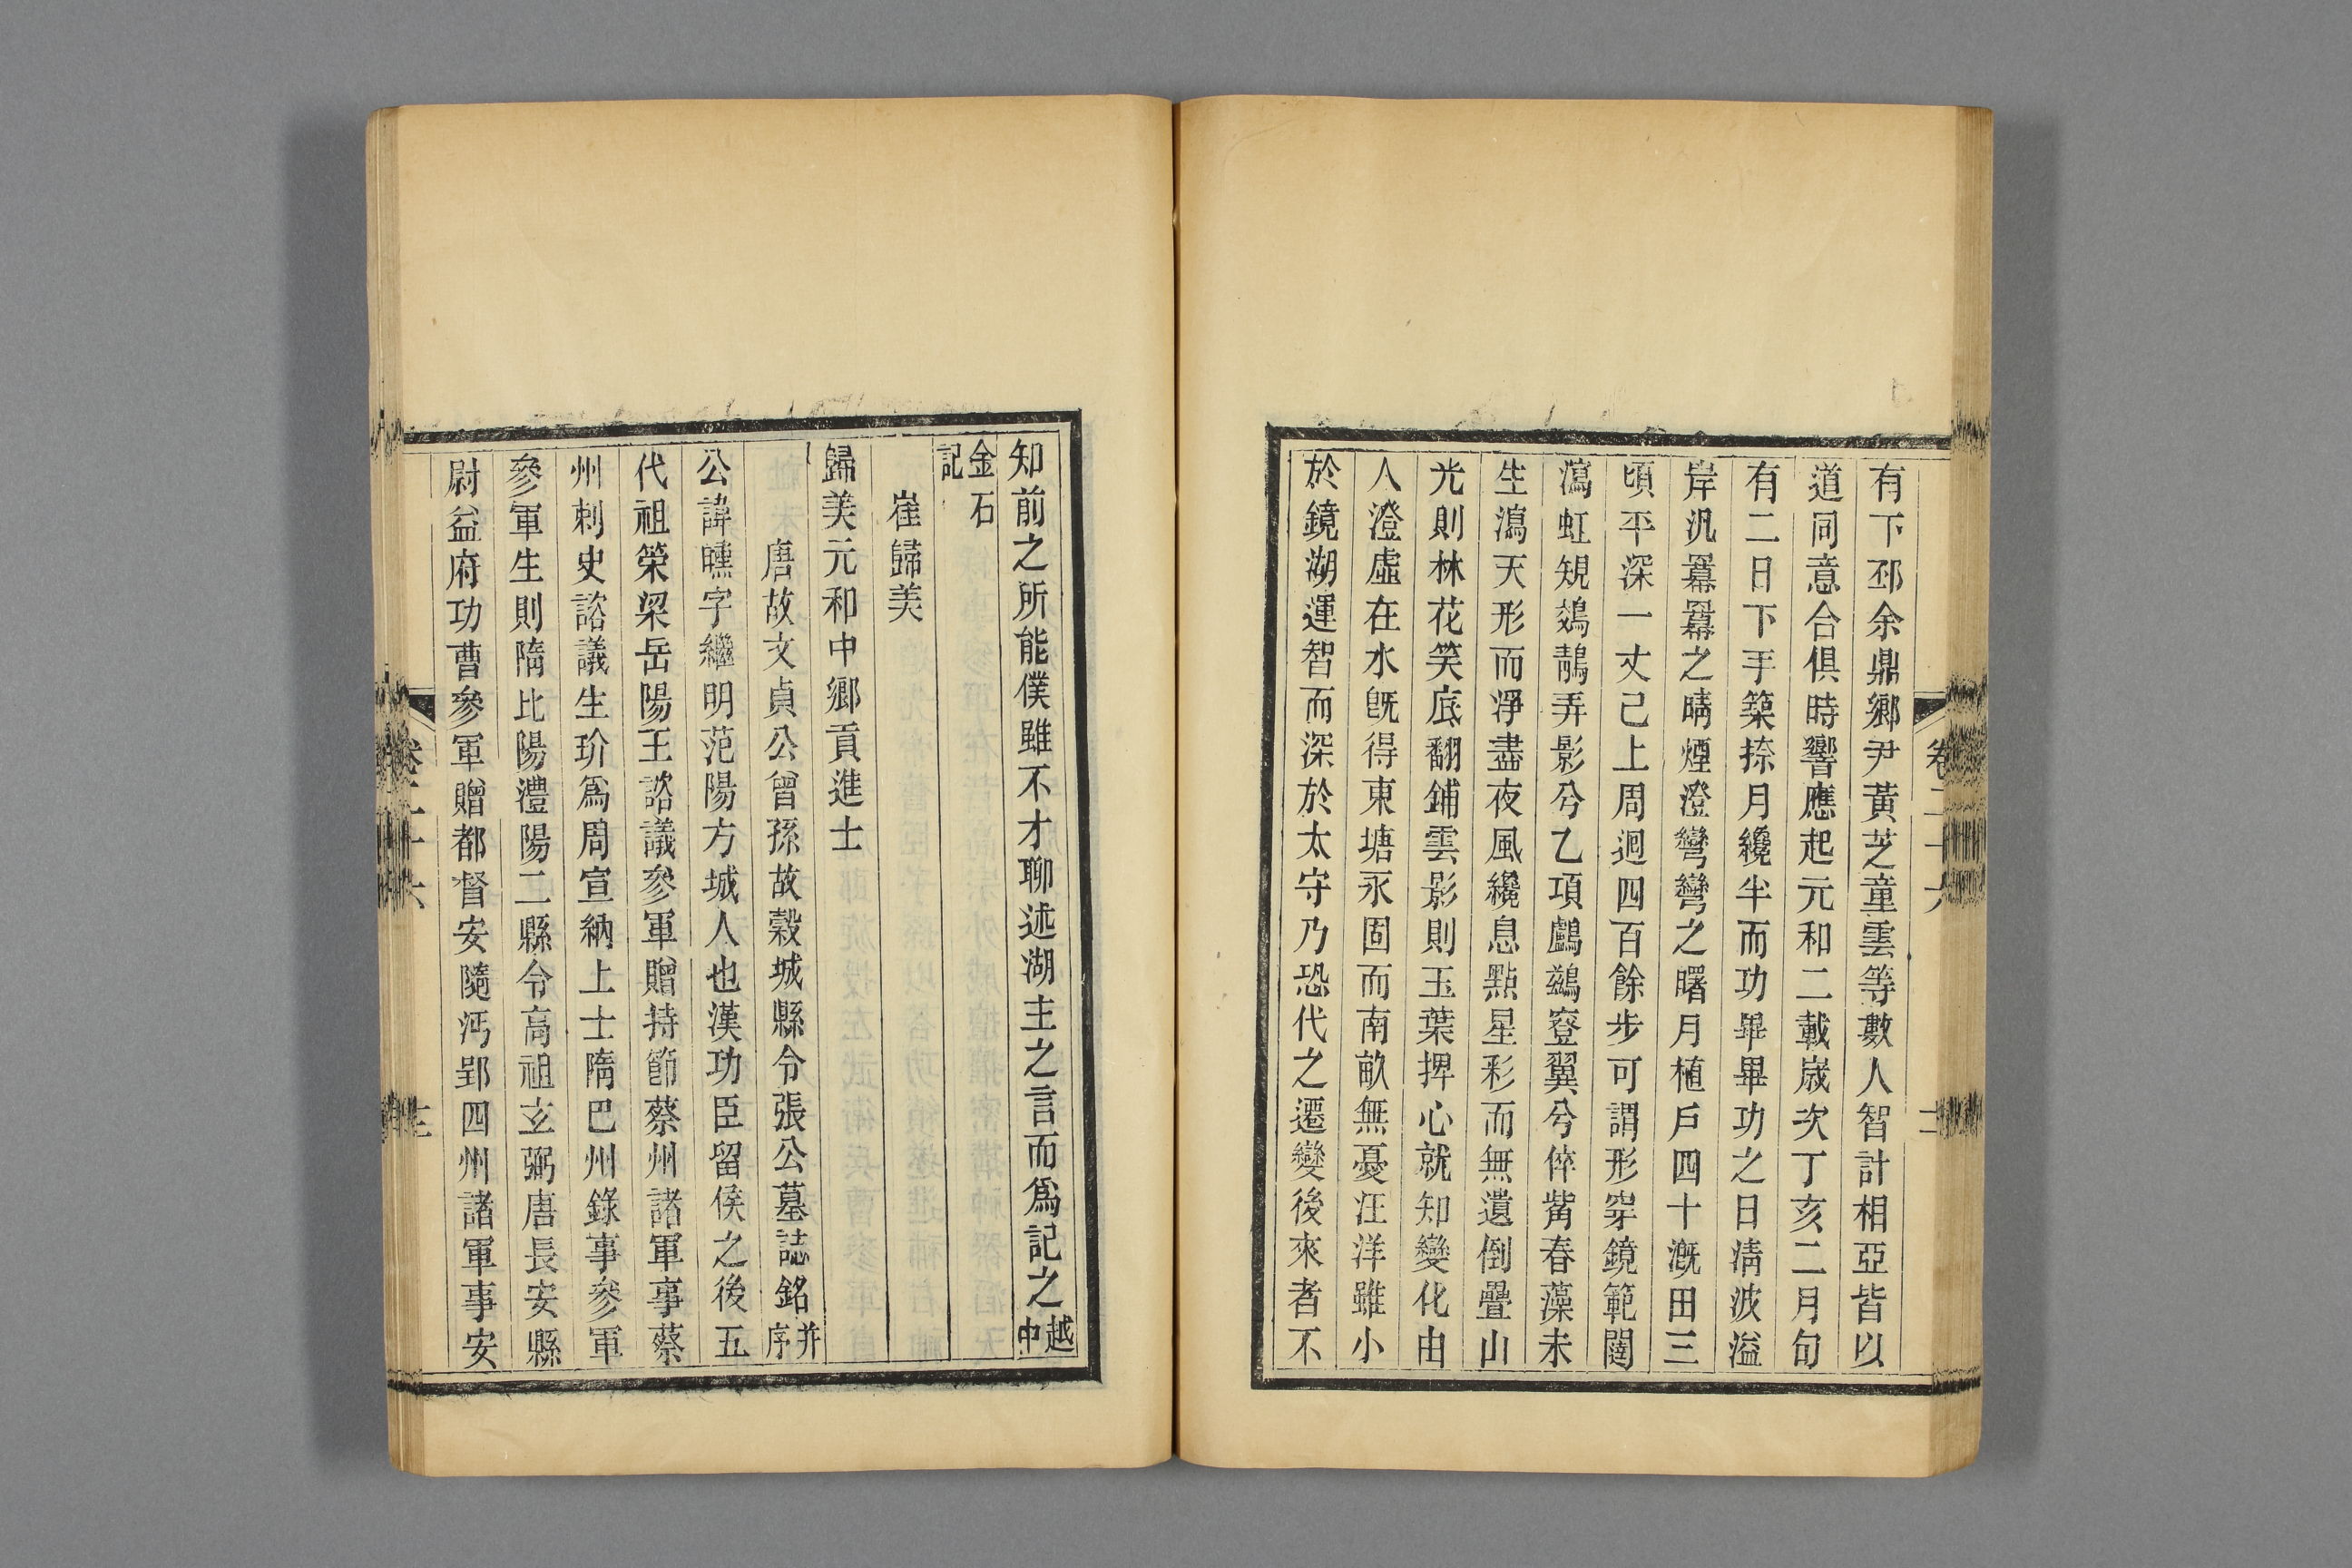 有下邳余鼎鄉尹黃芝童雲等數人智計相亞皆以
道同意合俱時響應起元和二載歲次丁亥二月旬
有二日下手築捺月纔半而功畢畢功之日清波溢
岸汎羃羃之晴煙澄彎彎之曙月植戶四十漑田三
頃平深一丈己上周迴四百餘步可謂形穿鏡範闊
瀉虹規鵁鶄弄影兮乙項鸕鷀登翼兮倅觜春藻未
生瀉天形而淨盡夜風纔息點星彩而無遺倒疊山
光則林花笑底翻鋪雲影則玉葉捭心就知變化由
人澄虛在水既得東塘永固而南畝無憂汪洋雖小
於鏡湖運智而深於太守乃恐代之遷變後來者不
知前之所能僕雖不才聊述湖主之言而爲記之越中
金石記
崔歸美
歸美元和中鄉貢進士
唐故文貞公曾孫故穀城縣令張公墓誌銘并序
公諱曛字繼明范陽方城人也漢功臣留侯之後五
代祖榮梁岳陽王諮議參軍贈持節蔡州諸軍事蔡
州刺史諮議生玠爲周宣納上士隋巴州錄事參軍
參軍生則隋比陽澧陽二縣令高祖玄弼唐長安縣
尉益府功曹參軍贈都督安隨沔郢四州諸軍事安
卷二十六